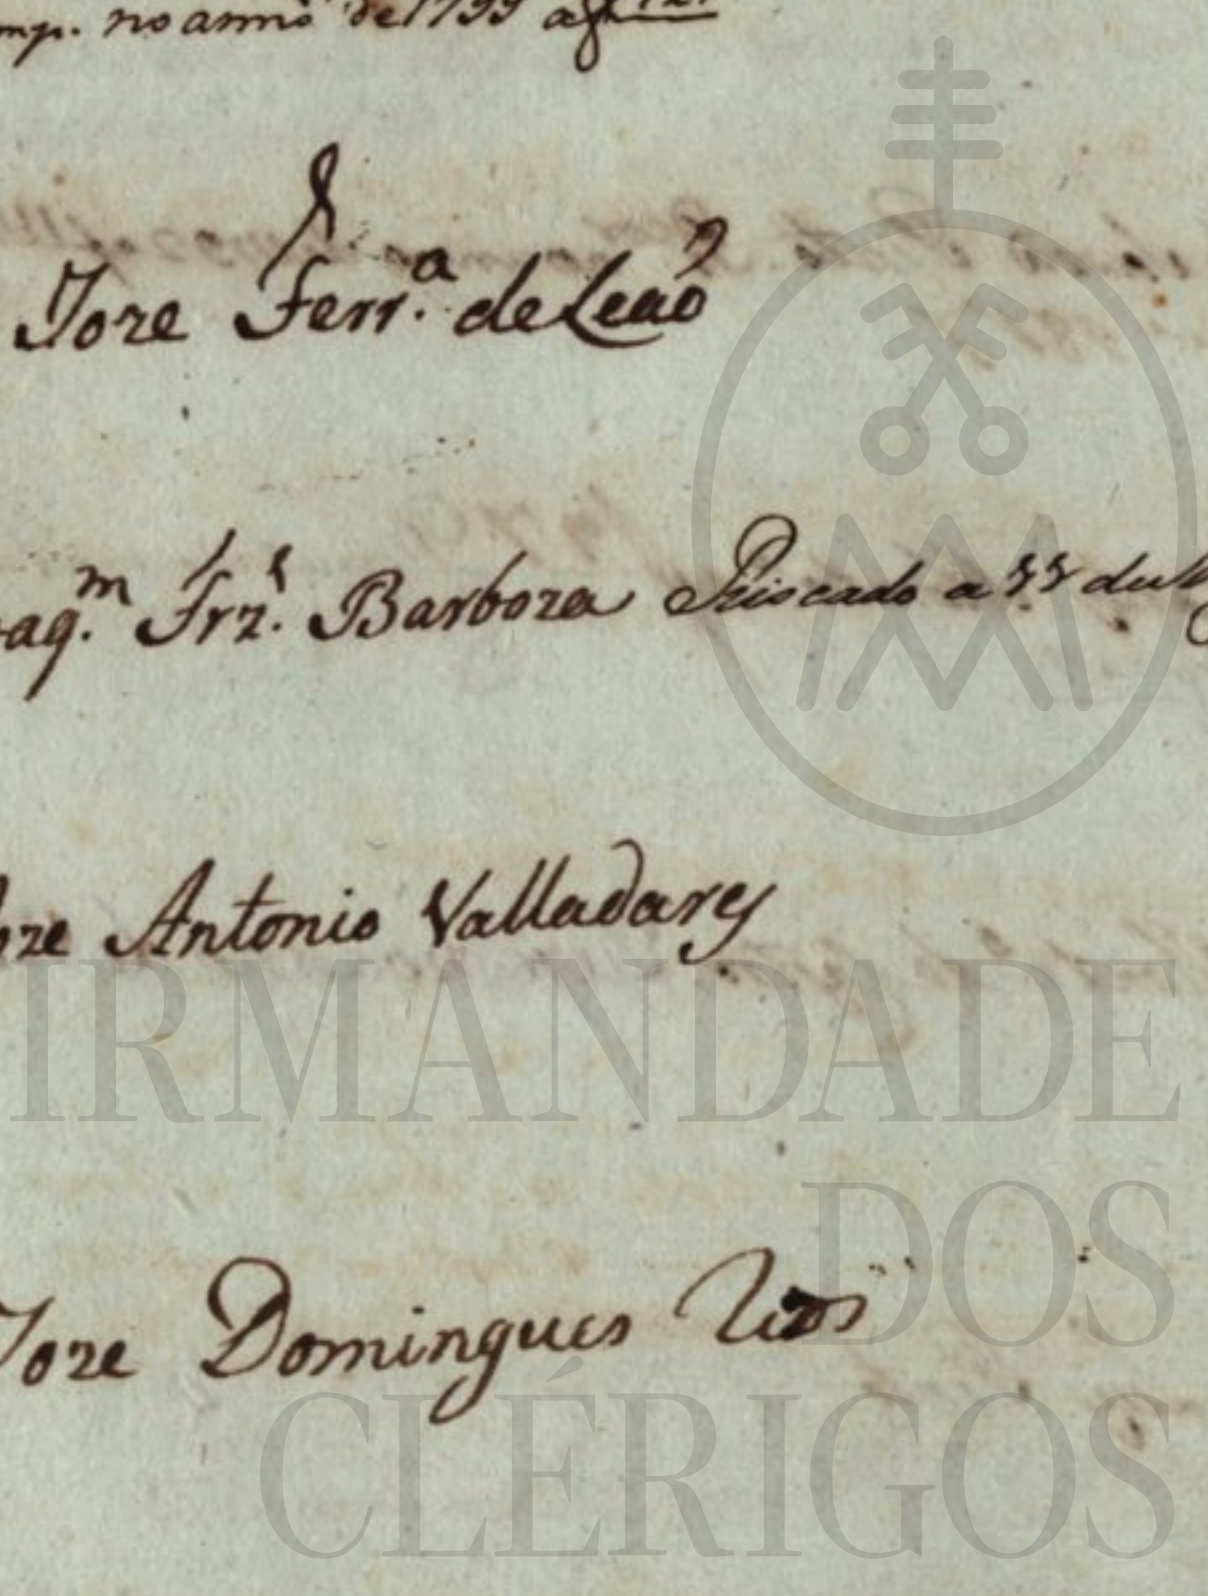 no anno de 1799 a f
Joze Ferr.ª de Leaõ
aq.m Frz.s Barboza Riscado a ff du
oze Antonio Valladares
Joze Domingues Rios
IRMANDADE
DOS
CLÉRIGOS